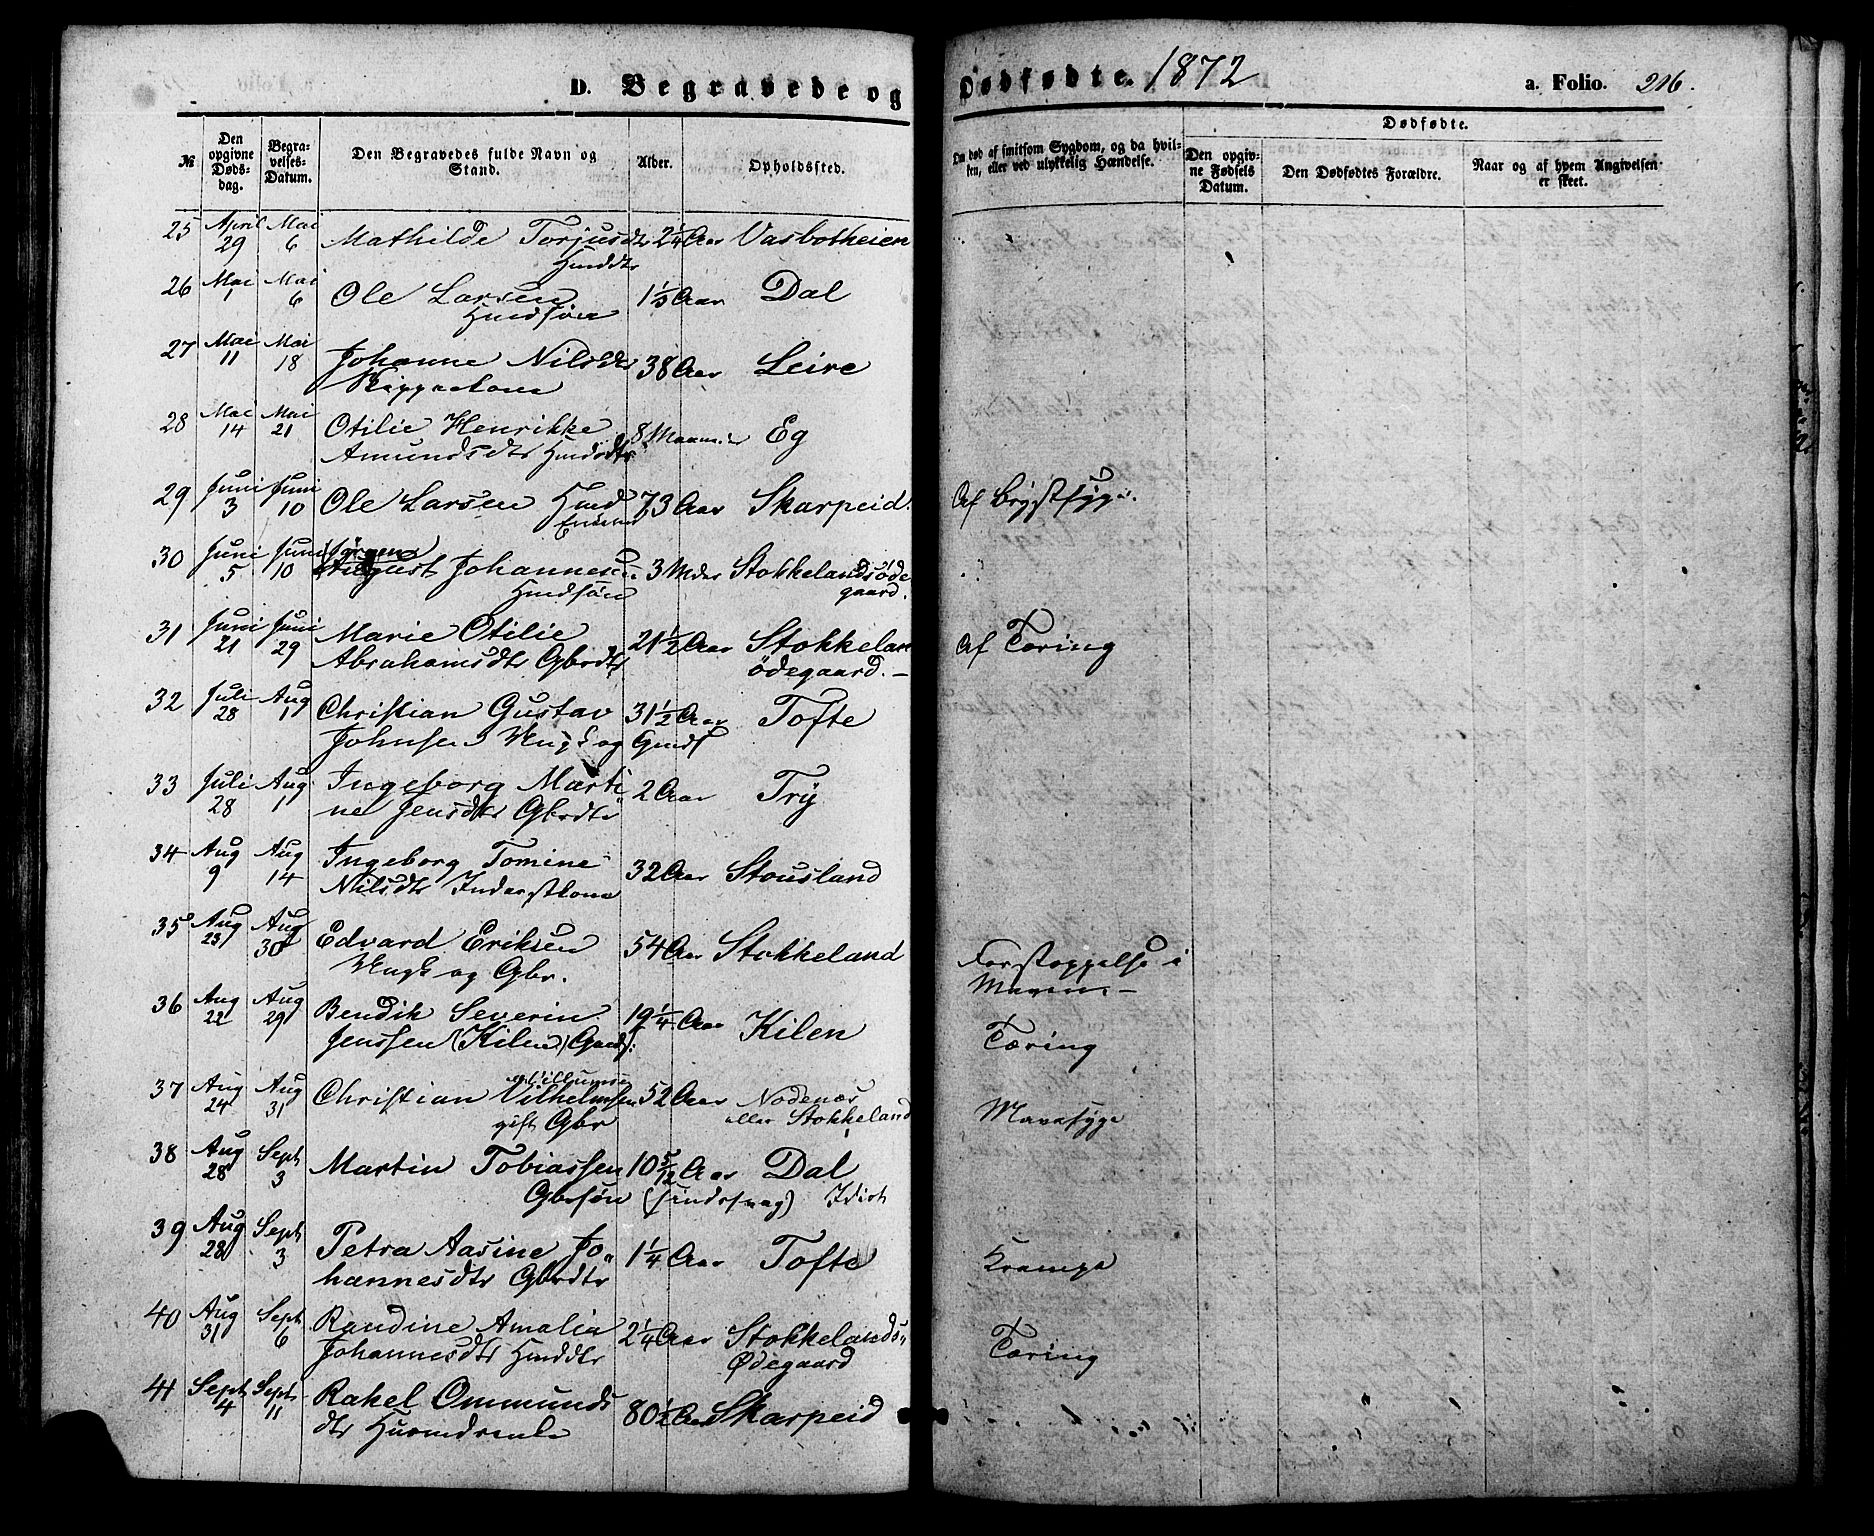 D. Begravede og Dødfødte. 1872 a. Folio. 206.
№ Den opgivne Dødsdag. Begravelses-Datum. Den Begravedes fulde Navn og Stand. Alder. Opholdssted. Om død af smitsom Sygdom, og da hvilken, eller ved ulykkelig Hændelse. Dødfødte.
Den opgivne Fødsels Datum. Den Dødfødtes Forældre. Naar og af hvem Angivelsen er skeet.
25 April 29 Mai 6 Mathilde Torjusdtr 2 1/4 Aar Vasbotheien
Husmdtr
26 Mai 1 Mai 6 Ole Larsen 1 1/3 Aar Dal
27 Mai 11 Mai 18 Johanne Nilsdtr 38 Aar Leire
28 Mai 14 Mai 21 Otilie Henrikke 8 Maaneder Eg
Amundsdtr
29 Juni 3 Juni 10 Ole Larsen 73 Aar Skarpeid. Af Brystsyge.
30 Juni 5 Juni 10 Jørgen
August Johannesen 3 Mdr Stokkelandsøde
gaard.
31 Juni 21 Juni 29 Marie Otilie 21 1/2 Aar Stokkelan Af Tæring
Abrahamsdtr Gbrdtr ødegaard. —
32 Juli 28 Aug 1 Christian Gustav 31 1/2 Aar Tofte
Johnsen Ungk og Gmds
33 Juli 28 Aug 1 Ingeborg Marti 2 Aar Try
ne Jensdtr Gbrdtr
34 Aug 9 Aug 14 Ingeborg Tomine 32 Aar Stousland
Nilsdtr Inderstkone
35 Aug 23 Aug 30 Edvard Eriksen 54 Aar Stokkeland Forstoppelse i
Ungk og Gbr. Maven —
36 Aug 22 Aug 29 Bendik Severin 19 1/4 Aar Kilen Tæring
Jenssen (Kilen) Gmds:
37 Aug 24 Aug 31 Christian Vilhelmsen 52 Aar Nodenæs Mavesyge
gift Gbr eller Stokkeland
38 Aug 28 Sept 3 Martin Tobiassen 10 5/12 Aar Dal
Gbrsøn (sindssvag) Idiot
39 Aug 28 Sept 3 Petra Aasine Jo 1 1/4 Aar Tofte Krampe
hannesdtr Gbrdtr
40 Aug 31 Sept 6 Randine Amalia 2 1/4 Aar Stokkelands Tæring
Johannesdtr Husmdtr Ødegaard
41 Sept 4 Sept 11 Rakel Ommunds 80 1/2 Aar Skarpeid
dtr